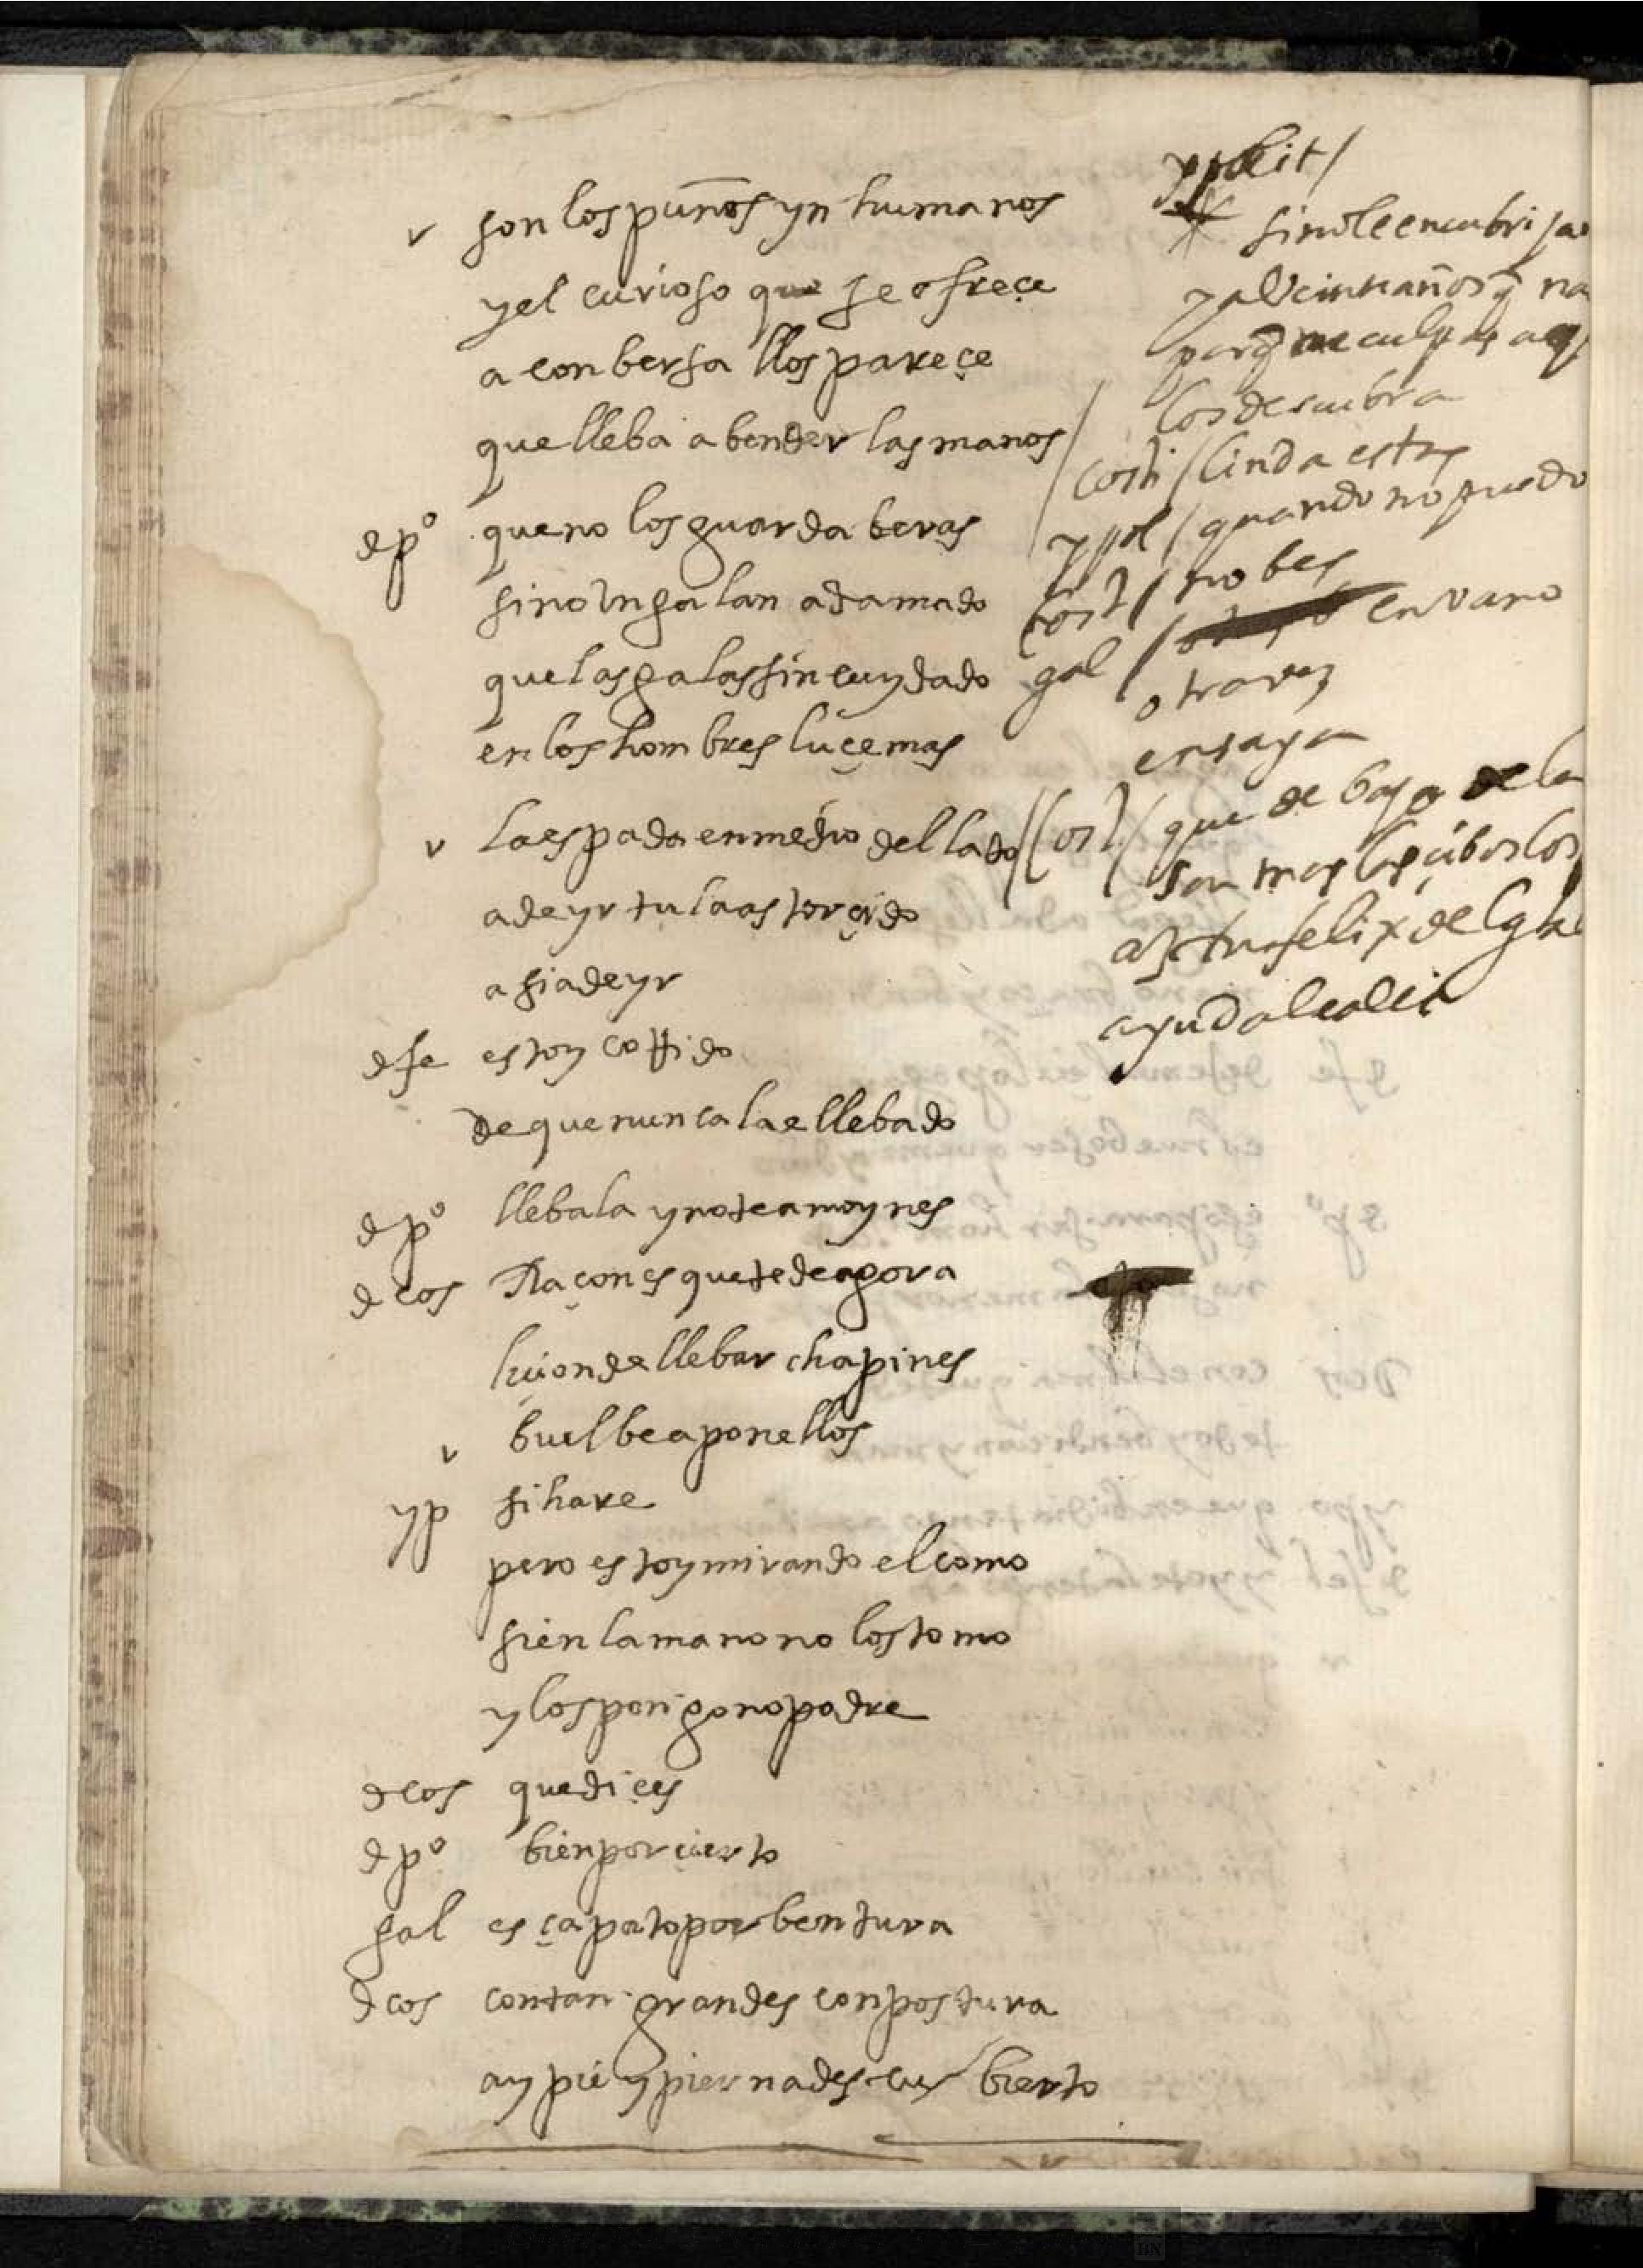 v son los puños yn humanos
y el curioso que se ofreçe
a conbersallos pareçe
que lleba a bender las manos
d p° que no los guarda beras
sino un galan adamado
que las galas sin cuydado
en los hombres luçe mas
v la espada en medio del lado
a de yr tu la as torçido
asi a de yr
d fe estoy corrido
de que nunca la e llebado
d p° llebala y no te amoynes
d cos Raçon es que te de agora
liçion de llebar chapines
v buelbe a ponellos
yp si hare
pero estoy mirando el como
si en la mano no los tomo
y los pongo no podre
d cos que diçes
d p° bien por çierto
gal es çapato por bentura
d cos con tan grandes conpostura
ay pie y pierna descubierto
sino le encubri
porq me culpas
los descubra
costi / linda estas
ypol / quando no puedo
cost / no bes
gal / en vano
otra vez
ensaya
cost / que debajo de la
son mas los